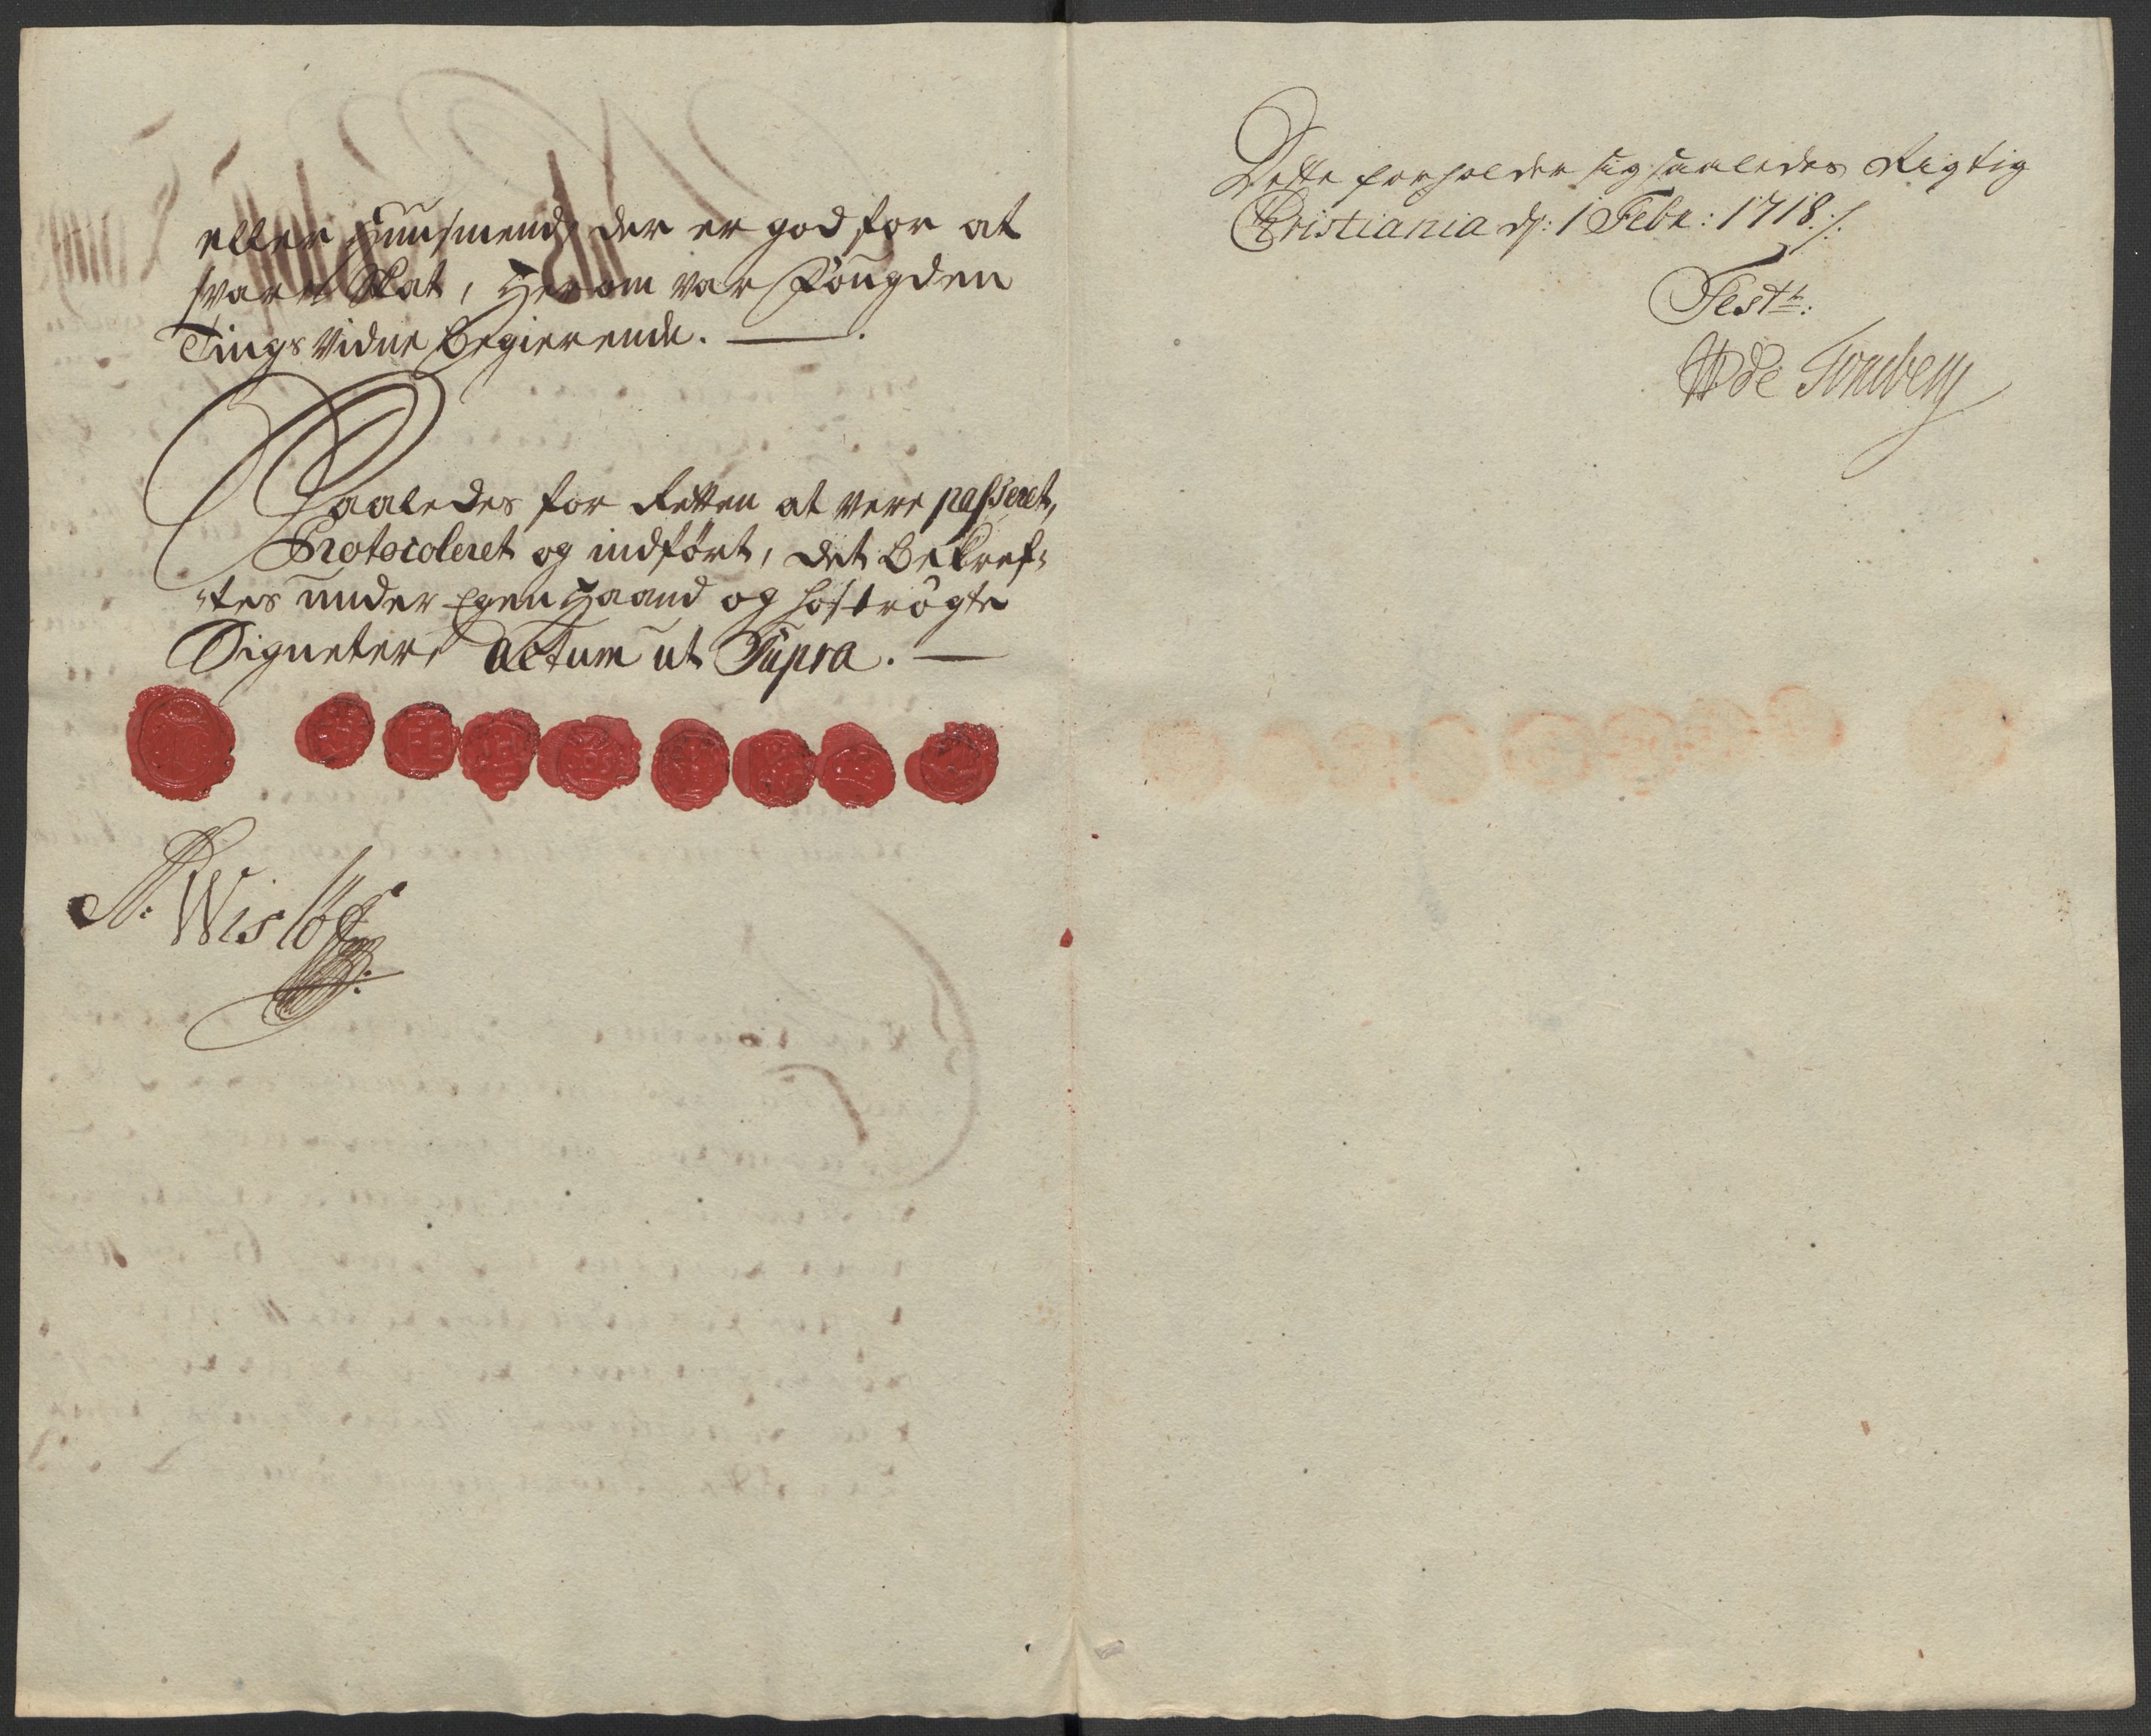 eller Huusmend der er god for at
svare Skat, Herom var Fougden
Tings Vidne begierende.
Saaledes for Retten at vere passeret,
Protocoleret og indført, det bekref-
-tes under Egen Haand og hoströgte
Signeter, Actum ut Supra.
N: Wislöff
Dette forholder sig saaledes Rigtig
Christiania d: 1 Febr: 1718 ./.
Test:
de Tonsberg